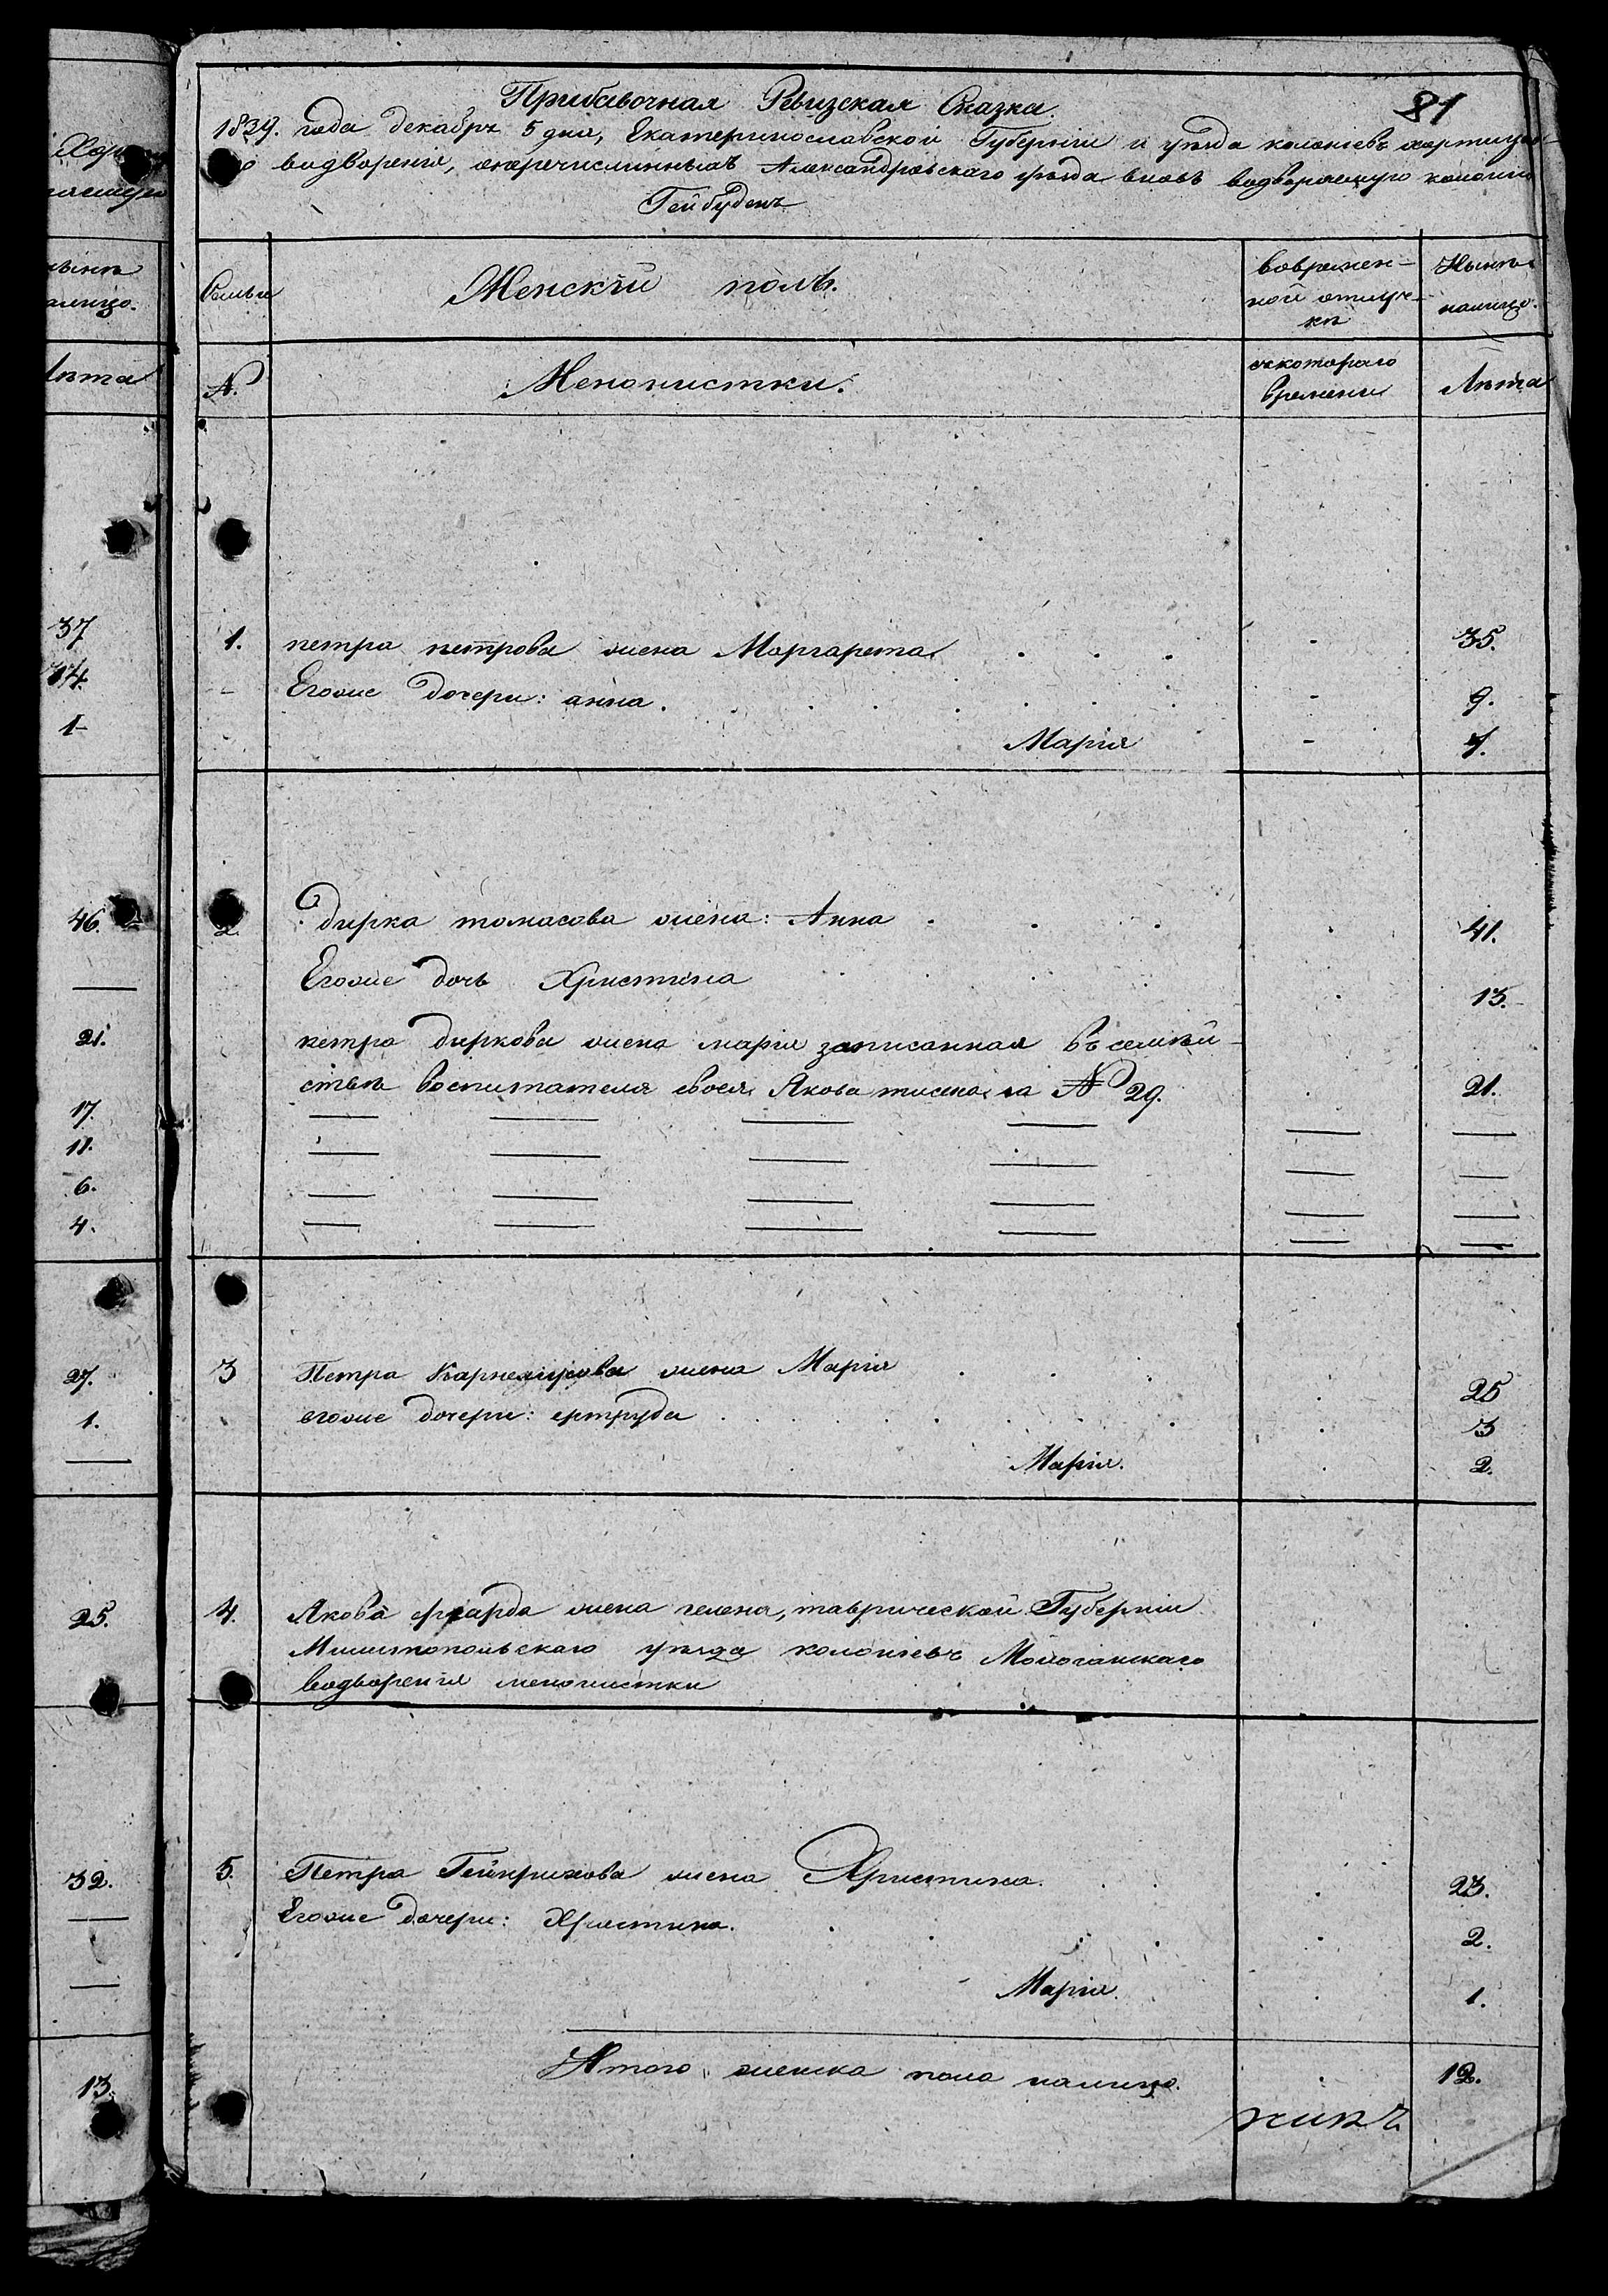 81
Прибавочная Ревизская Сказка.
1839. года декабря 5 дня, Екатеринославской Губерніи и уѣзда колонiевъ хортицко
водворенія, Александровскаго уѣзда вновь водворяемую колонію
Гейбуденъ
Семьи
Женскій полъ.
вовремен-
ной отлуч-
кѣ
Нынѣ
налицо.
№.
Менонистки.
съкотораго
времени
Лѣта
1. петра петрова жена Маргарета . . . - 35.
- Егоже дочери: анна. . . . . - 9.
Марія - 7.
2. дирка томасова жена: Анна . . . . 41.
Егоже дочь Христина . 13.
петра диркова жена марія записанная въ семѣй-
ствѣ воспитателя своея Якова тисена на № 29. . 21.
3 Петра Карнелиусова жена Марія . . . . 25
егоже дочери: ертруда . . . . . . 3
Марія. . 2.
4. Якова жена гелена, таврической Губерніи
Мелитопольскаго уѣзда колонiевъ Молочанскаго
водворенія менонистки
5. Петра Гейнрихова жена Христина. . . 23.
Егоже дочери: Христина. . . . 2.
Марія. . 1.
Итого женска пола налицо. . 12.
нынѣ
налицо.
Лѣта
37
14.
1-
46.
21.
17.
11.
6.
4.
27.
1.
25.
32.
13.